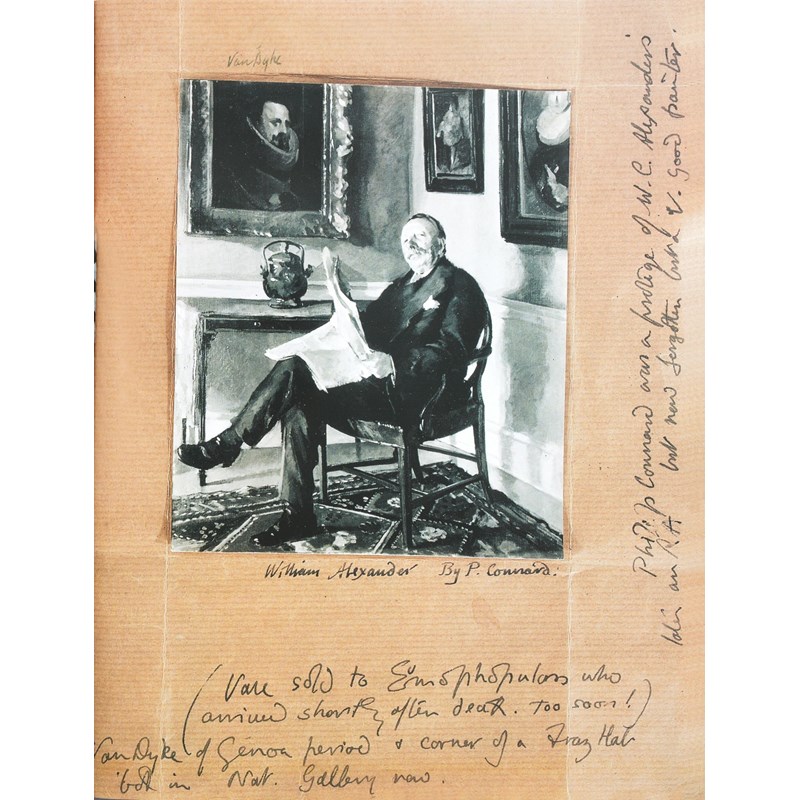 Van Dyke
William Alexander By P. Connard.
(Vase sold to Eumophopulous who
arrived shortly after death. Too soon!)
Van Dyke of Genoa period & corner of a Franz Hals
both in Nat. Gallery now.
Philip Connard was a protége of W. C. Alexanders
later an R.A. but now forgotten but a v. good painter.